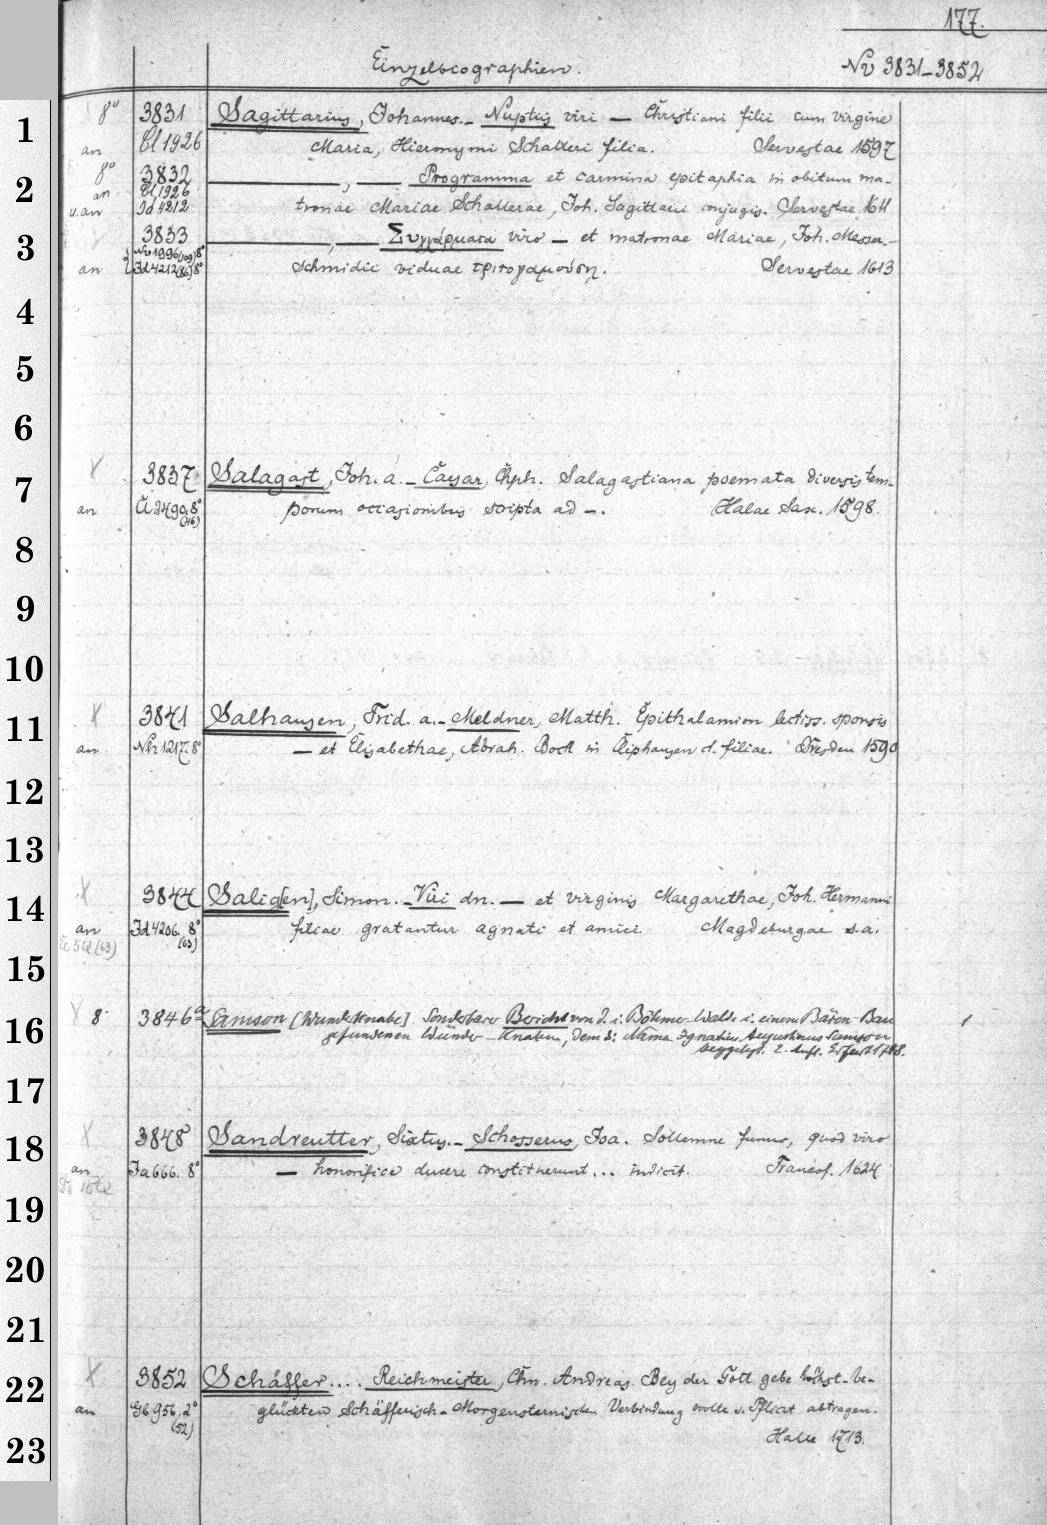 177.
Einzelbiographien.
Nv 3831–3852
1 8° 3831 Sagittarius, Johannes.– Nuptiis viri — Christiani filii cum virgine
an Cl 1926 Maria, Hieronymi Schalleri filia. Servestae 1597
2 8° 3832 —, — Programma et carmina epitaphia in obitum ma-
an Cl 1926
u. an Id 4212 tronae Mariae Schallerae, Joh. Sagittarii conjugis. Servestae 1611
3 3833 —, — Συγχάρματα viro — et matronae Mariae, Joh. Messer-
Nv 1996 (109) 8°
an Id 4212 (86) 8° schmidii viduae τριτογαμούσῃ. Servestae 1613
4
5
6
7 X 3837 Salagast, Joh. a.– Caesar, Chph. Salagastiana poemata diversis tem-
an Ci 2499. 8° (46) porum occasionibus scripta ad –. Halae Sax. 1598.
8
9
10
11 X 3841 Salhausen, Frid. a.– Meldner, Matth. Epithalamion lectiss. sponsis
an Nh 1217. 8° — et Elisabethae, Abrah. Bock in Cliphausen d. filiae. Dresden 1590
12
13
14 X 3844 Salig[en], Simon.– Viri dn. — et virginis Margarethae, Joh. Hermanni
an Id 4206. 8° (63) filiae gratantur agnati et amici Magdeburgae s.a.
15
16 X 8° 3846a Samson [Wunderknabe] Sonderbarer Bericht von d. i. Böhmer-Walde i. einem Bären-Bau
gefundenen Wunder-Knaben, dem d: Name Ignatius Augustinus Samson
beygelegt. 2. Aufl. Erfurt 1748.
17
18 X 3848 Sandreutter, Sixtus.– Schosserus, Joa. Sollemne funus, quod viro
an Ja 666. 8° — honorifice ducere constituerunt ... indicit. Francof. 1624
19
20
21
22 X 3852 Schäffer.... Reichmeister, Chn. Andreas. Bey der Gott gebe höchst-be-
an Gb 956. 2° (52) glückten Schäfferisch-Morgensternischen Verbindung wolte s. Pflicht abtragen.
23 Halle 1713.